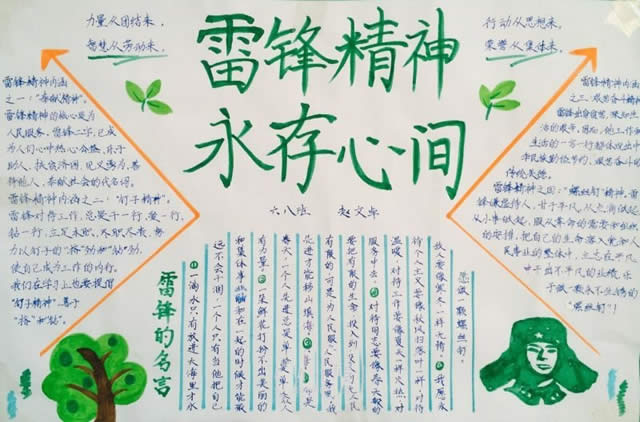 力量从团结来，
智慧从劳动来，
行动从思想来，
荣誉从集体来。
雷锋精神
永存心间
六八班 赵文卓
雷锋精神内涵
之一："奉献精神"。
雷锋精神的核心是为
人民服务，雷锋二字，已成
为人们心中热心公益，乐于
助人，扶贫济困，见义勇为，善
待他人，奉献社会的代名词。
雷锋精神内涵之二："钉子精神"。
雷锋对待工作，总是干一行，爱一行，
钻一行，立足本职，不耻下
力以钉子的"挤"劲和"钻"劲，
使自己成为工作的内行。
我们在学习上也要提倡
"钉子精神"，善于
"挤"和"钻"。
雷锋精神内涵
之三：艰苦奋斗精神
雷锋出身贫苦
生活的一言一行都体现出中
传统美德。
雷锋精神之四："螺丝钉"精神，雷
锋谦虚待人，甘于平凡，从点滴做起，
从小事做起，服从革命的需要和组织
的安排，把自己的生命融入党和人
民事业的整体中，立志在平凡
中干出不平凡的业绩，乐
于做一颗永不生
"螺丝钉"！
愿做一颗螺丝钉。
敌人要像严冬一样无情。
待个人主义要像秋风扫落叶一样，对待
温暖，对待工作要像夏天一样火热，对
服务中去 对待同志要像春天般的
要把有限的生命，投入到无限的为人民
有限的，可是为人民服务是无限的，我
先进才能移山填海
春天，一个人先进总是单，众人
有力量。一朵鲜花打扮不出美丽的
和集体事业融和在一起的时候才能最
远不会干涸，一个人只有当他把自己
一滴水只有放进大海里才永
雷锋的名言